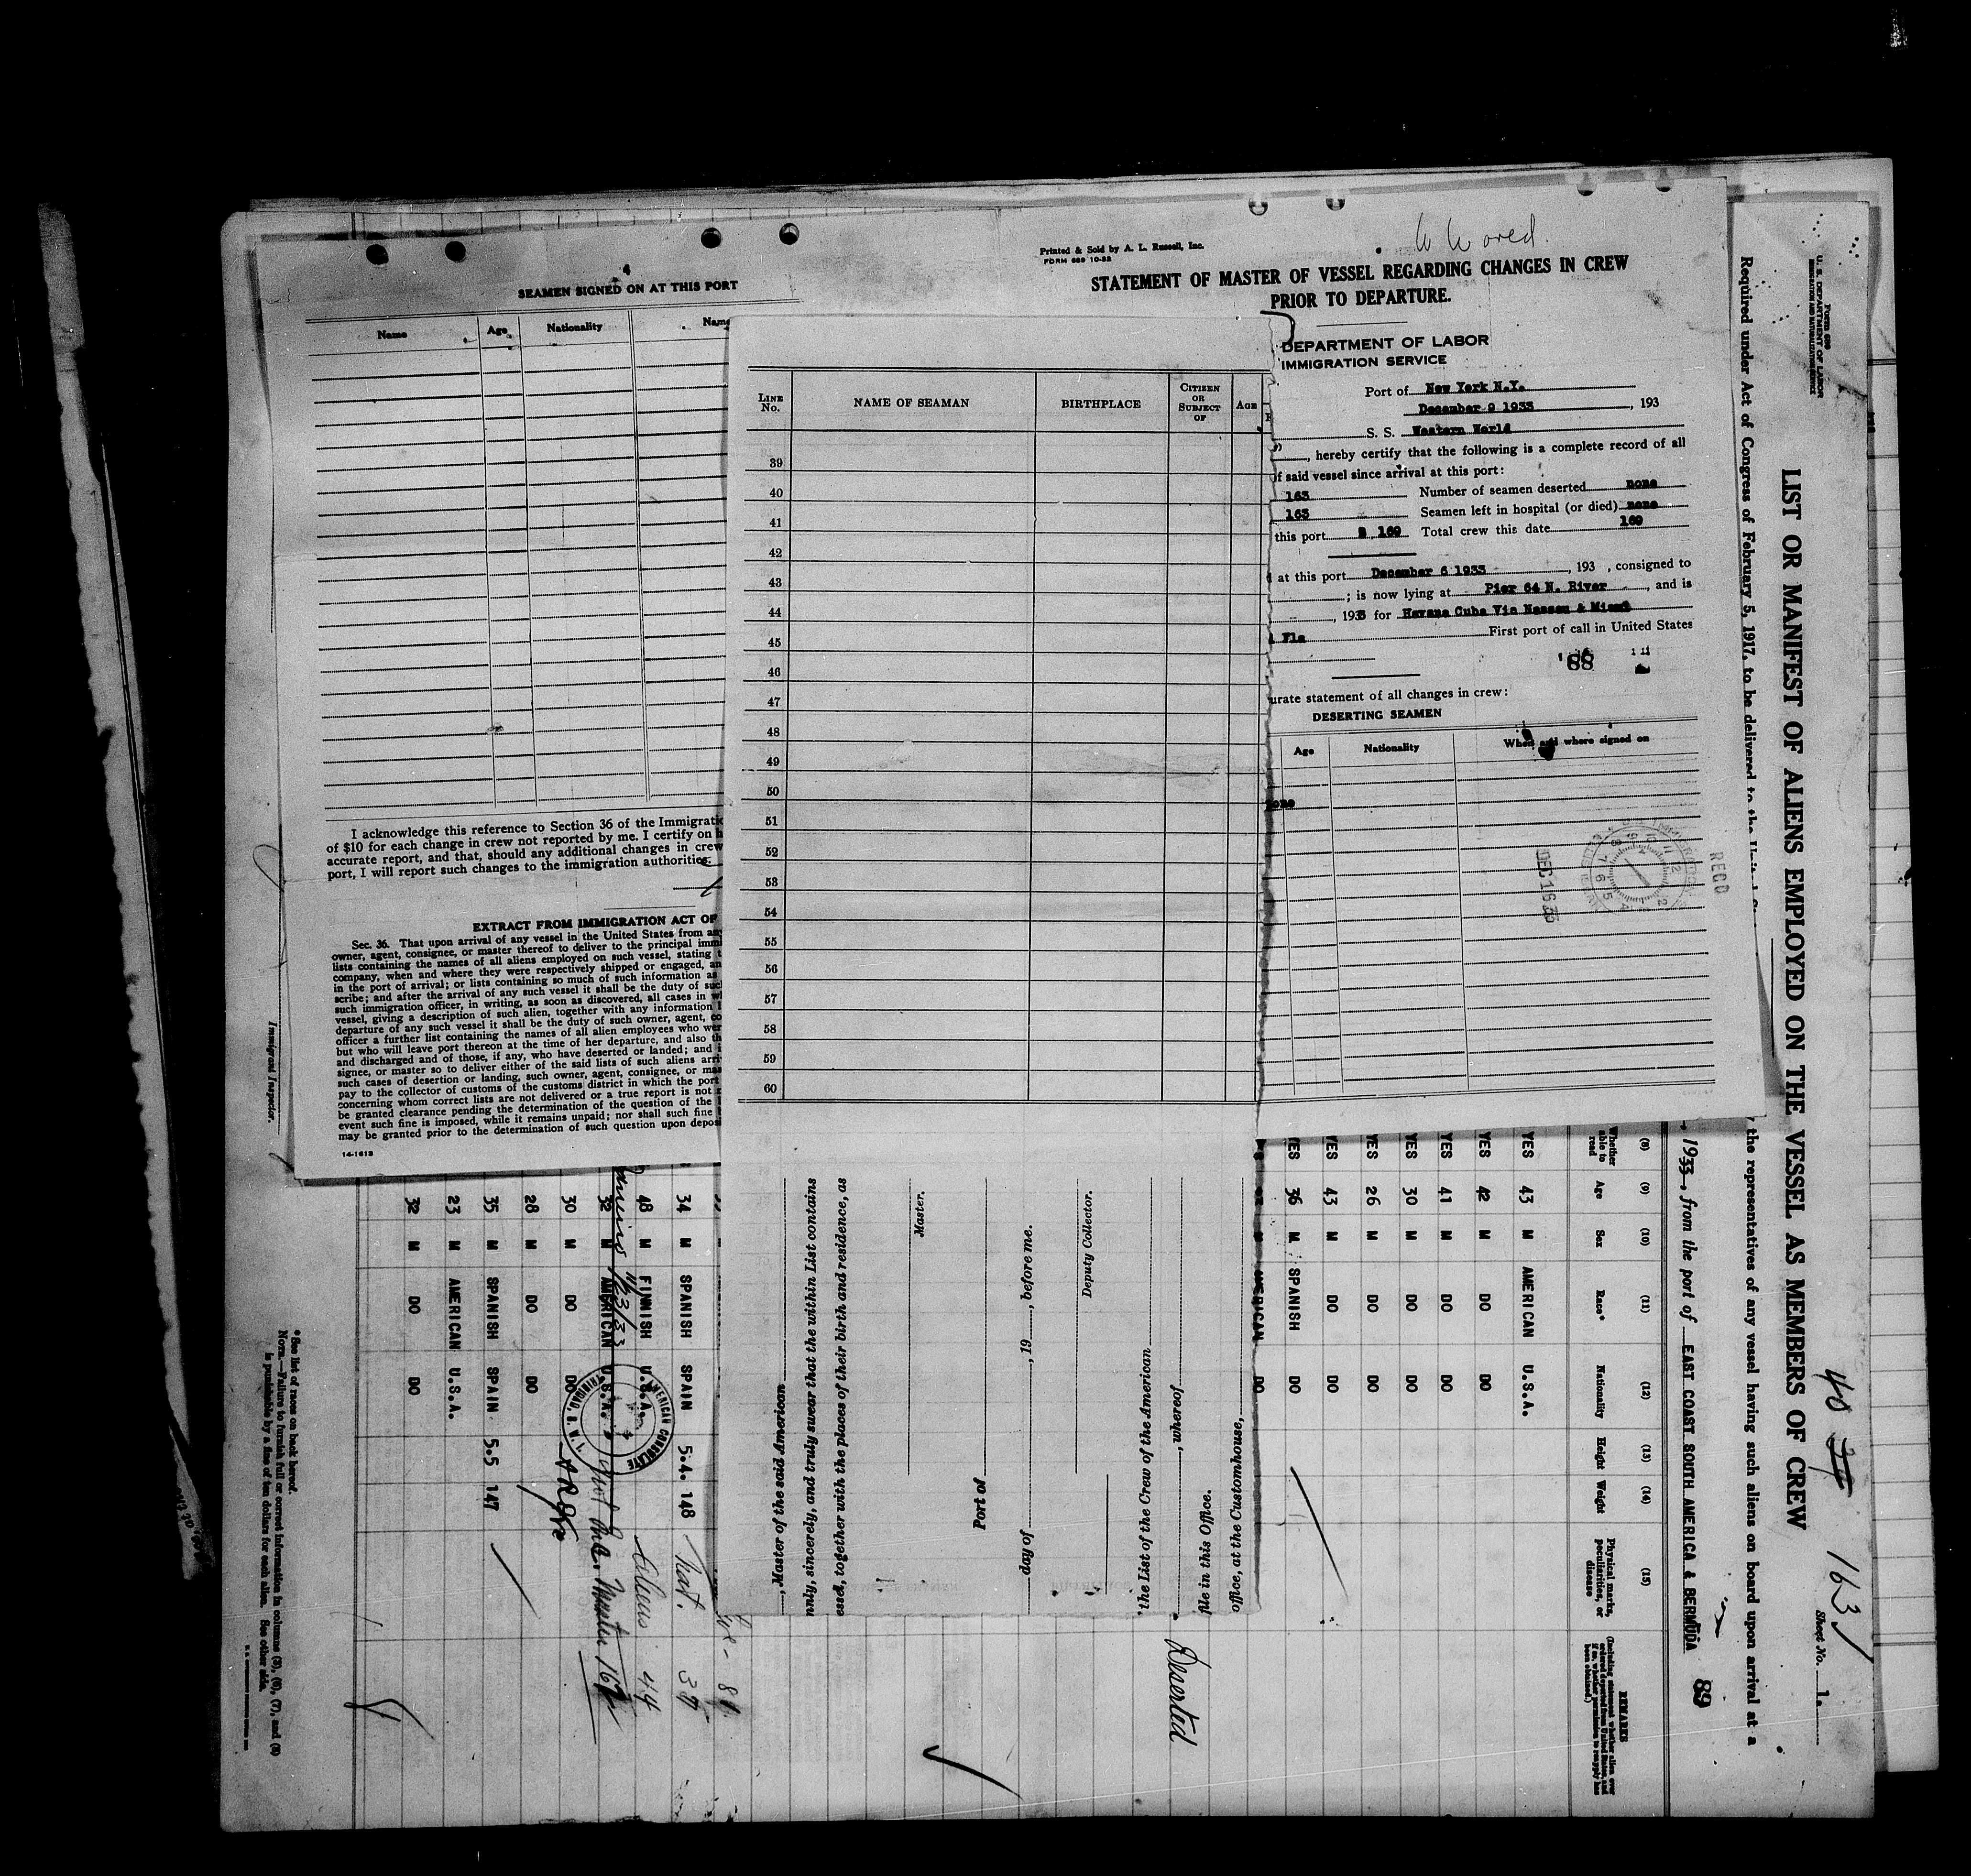 4
SEAMEN SIGNED ON AT THIS PORT
Name Age Nationality Name
I acknowledge this reference to Section 36 of the Immigratio
of $10 for each change in crew not reported by me. I certify on h
accurate report, and that, should any additional changes in crew
port, I will report such changes to the immigration authorities.
EXTRACT FROM IMMIGRATION ACT OF
Sec. 36. That upon arrival of any vessel in the United States from an
owner, agent, consignee, or master thereof to deliver to the principal immi
lists containing the names of all aliens employed on such vessel, stating t
company, when and where they were respectively shipped or engaged, an
in the port of arrival; or lists containing so much of such information as
scribe; and after the arrival of any such vessel it shall be the duty of suc
such immigration officer, in writing, as soon as discovered, all cases in w
vessel, giving a description of such alien, together with any information l
departure of any such vessel it shall be the duty of such owner, agent, co
officer a further list containing the names of all alien employees who wer
but who will leave port thereon at the time of her departure, and also th
and discharged and of those, if any, who have deserted or landed; and i
signee, or master so to deliver either of the said lists of such aliens arri
such cases of desertion or landing, such owner, agent, consignee, or mas
pay to the collector of customs of the customs district in which the port
concerning whom correct lists are not delivered or a true report is not
be granted clearance pending the determination of the question of the
event such fine is imposed, while it remains unpaid; nor shall such fine
may be granted prior to the determination of such question upon depos
14-1613
Printed & Sold by A. L. Russell, Inc.
FORM 689 10-32
STATEMENT OF MASTER OF VESSEL REGARDING CHANGES IN CREW
PRIOR TO DEPARTURE.
DEPARTMENT OF LABOR
IMMIGRATION SERVICE
Port of New York N.Y.
December 9 1933, 193
S. S. Western World
, hereby certify that the following is a complete record of all
of said vessel since arrival at this port:
163 Number of seamen deserted none
163 Seamen left in hospital (or died) none
this port 169 Total crew this date 169
at this port December 6 1933, 193 , consigned to
; is now lying at Pier 64 N. River, and is
, 1933 for Havana Cuba Via Nassau & Miami
Fla First port of call in United States
88
urate statement of all changes in crew:
DESERTING SEAMEN
Age Nationality When and where signed on
none
RECD
DEC 16 33
LINE No. NAME OF SEAMAN BIRTHPLACE CITIZEN OR SUBJECT OF AGE
39
40
41
42
43
44
45
46
47
48
49
50
51
52
53
54
55
56
57
58
59
60
, Master of the said American
nly, sincerely, and truly swear that the within List contains
essel, together with the places of their birth and residence, as
Master.
Port of
day of , 19 , before me.
Deputy Collector.
the List of the Crew of the American
, whereof
file in this Office.
office, at the Customhouse,
Form 689
U. S. DEPARTMENT OF LABOR
IMMIGRATION AND NATURALIZATION SERVICE
LIST OR MANIFEST OF ALIENS EMPLOYED ON THE VESSEL AS MEMBERS OF CREW
40 163
Sheet No. 1.
Required under Act of Congress of February 5, 1917, to be delivered to the United
the representatives of any vessel having such aliens on board upon arrival at a
, 1933, from the port of EAST COAST SOUTH AMERICA & BERMUDA
89
(8) (9) (10) (11) (12) (13) (14) (15)
Whether able to read Age Sex Race* Nationality Height Weight Physical marks, peculiarities, or disease REMARKS
YES 43 M AMERICAN U.S.A.
YES 42 M DO DO
YES 41 M DO DO
YES 30 M DO DO
YES 26 M DO DO
YES 43 M DO DO
YES 36 M SPANISH DO
AMERICAN DO
Deserted
34 M SPANISH SPAIN 5.4. 148 37
48 M FINNISH U.S.A. 44
32 M AMERICAN U.S.A.
11/23/33
30 M DO DO
28 M DO DO
35 M SPANISH SPAIN 5.5 147
23 M AMERICAN U.S.A.
32 M DO DO
AMERICAN CONSULATE
TRINIDAD, B.W.I.
*See list of races on back hereof.
NOTE.—Failure to furnish full or correct information in columns (3), (6), (7), and (8)
is punishable by a fine of ten dollars for each alien. See other side.
Immigrant Inspector.